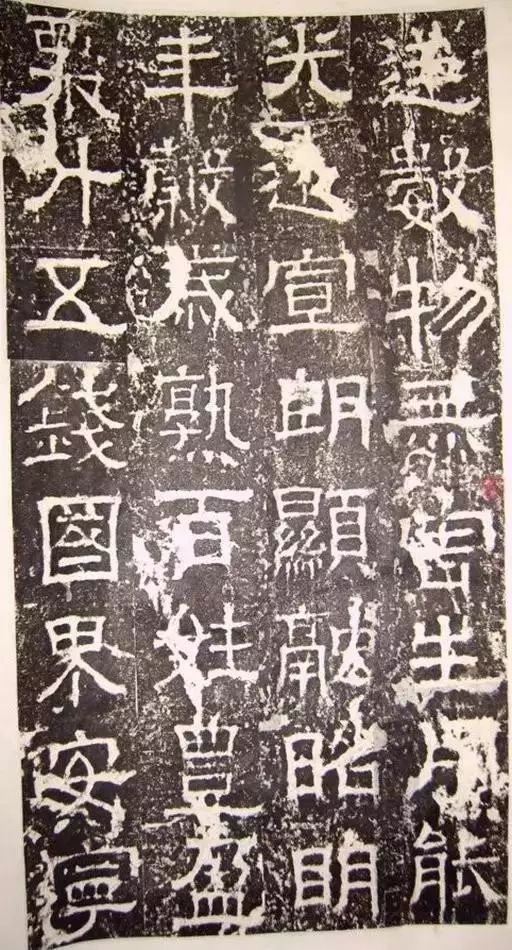 違數物無害生用能
光遠宣朗顯融昭明
年穀歲熟百姓豐盈
粟斗五錢國界安寧